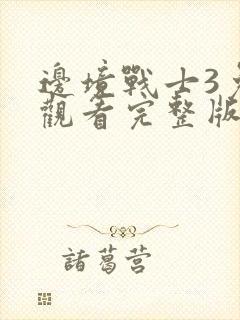 邊境戰士3免
觀看完整版
諸葛营